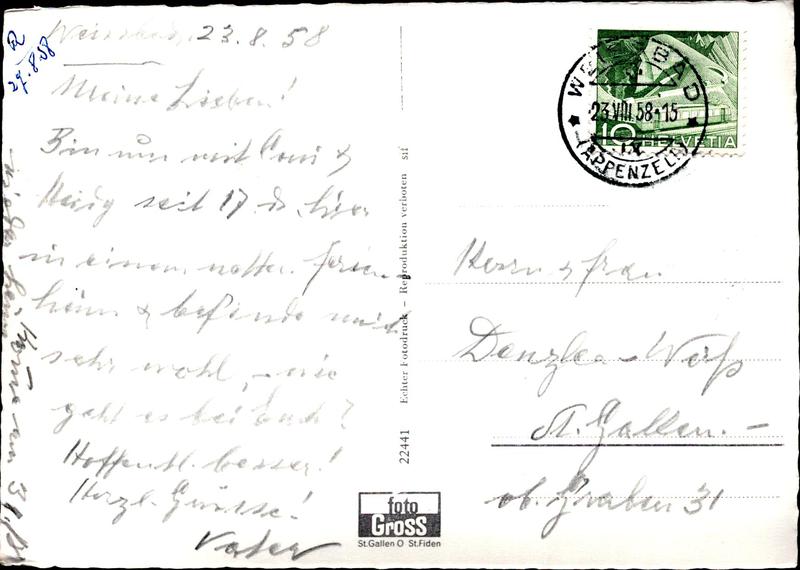 R
29.8.58
Weissbad, 23.8.58
Meine Lieben!
Bin nun mit &
seit 17. ds. hier
in einem netten Ferien-
heim & befinde mich
sehr wohl, – wie
geht es bei Euch?
Hoffentl. besser!
Herzl. Grüsse!
Vater
komme am 31.
wieder heim
22441 Echter Fotodruck – Reproduktion verboten sif
foto
GROSS
St.Gallen O St.Fiden
WEISSBAD
23.VIII.58-15
(APPENZELL)
10 HELVETIA
Herrn & Frau
Denzler-Wiss
St. Gallen. –
ob. Graben 31